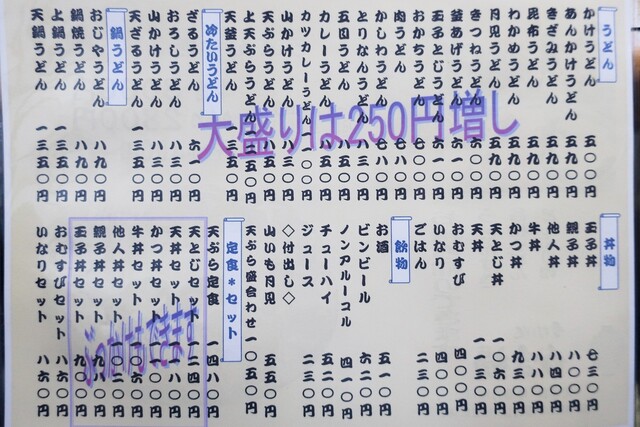 うどん
かけうどん 五〇〇円
あんかけうどん 五九〇円
きざみうどん 五九〇円
昆布うどん 五九〇円
わかめうどん 五九〇円
月見うどん 五九〇円
きつねうどん
釜あげうどん 六一〇円
玉子とじうどん
おかちうどん 七八〇円
肉うどん 七八〇円
かしわうどん 七八〇円
とりなんうどん 八三〇円
五目うどん 八五〇円
カレーうどん 八五〇円
カツカレーうどん
山かけうどん 八三〇円
天ぷらうどん
上天ぷらうどん
天釜うどん 一三五〇円
冷たいうどん
ざるうどん 六一〇円
おろしうどん 八三〇円
山かけうどん 八三〇円
天ざるうどん 一三五〇円
鍋うどん
おじやうどん 八九〇円
鍋焼うどん 八九〇円
上鍋うどん 一三五〇円
天鍋うどん 一三五〇円
大盛りは250円増し
丼物
玉子丼 七三〇円
親子丼 八〇〇円
他人丼 八四〇円
牛丼 八八〇円
かつ丼 九三〇円
天とじ丼 一一〇〇円
天丼 一一三〇円
おむすび 四〇〇円
いなり 四〇〇円
ごはん 二三〇円
飲物
お酒 五一〇円
ビンビール 六二〇円
ノンアルーコル 四一〇円
チューハイ 五二〇円
ジュース 二三〇円
◇付出し◇
山いも月見 五五〇円
天ぷら盛合わせ 一〇五〇円
定食*セット
天ぷら定食 一四八〇円
天とじセット
天丼セット
かつ丼セット
牛丼セット
他人丼セット
親子丼セット
玉子丼セット
おむすびセット 八六〇円
いなりセット 八六〇円
ぶっかけもできます